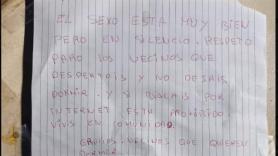 EL SEXO ESTA MUY BIEN
PERO EN SILENCIO. RESPETO
PARO LOS VECINOS QUE
DESPERTAIS Y NO DEJAIS
DORMIR. Y POR
INTERNET ESTA PROHIBIDO
VIVIS EN COMUNIDAD.
GRACIAS. VECINES QUE QUIEREN
DORMIR